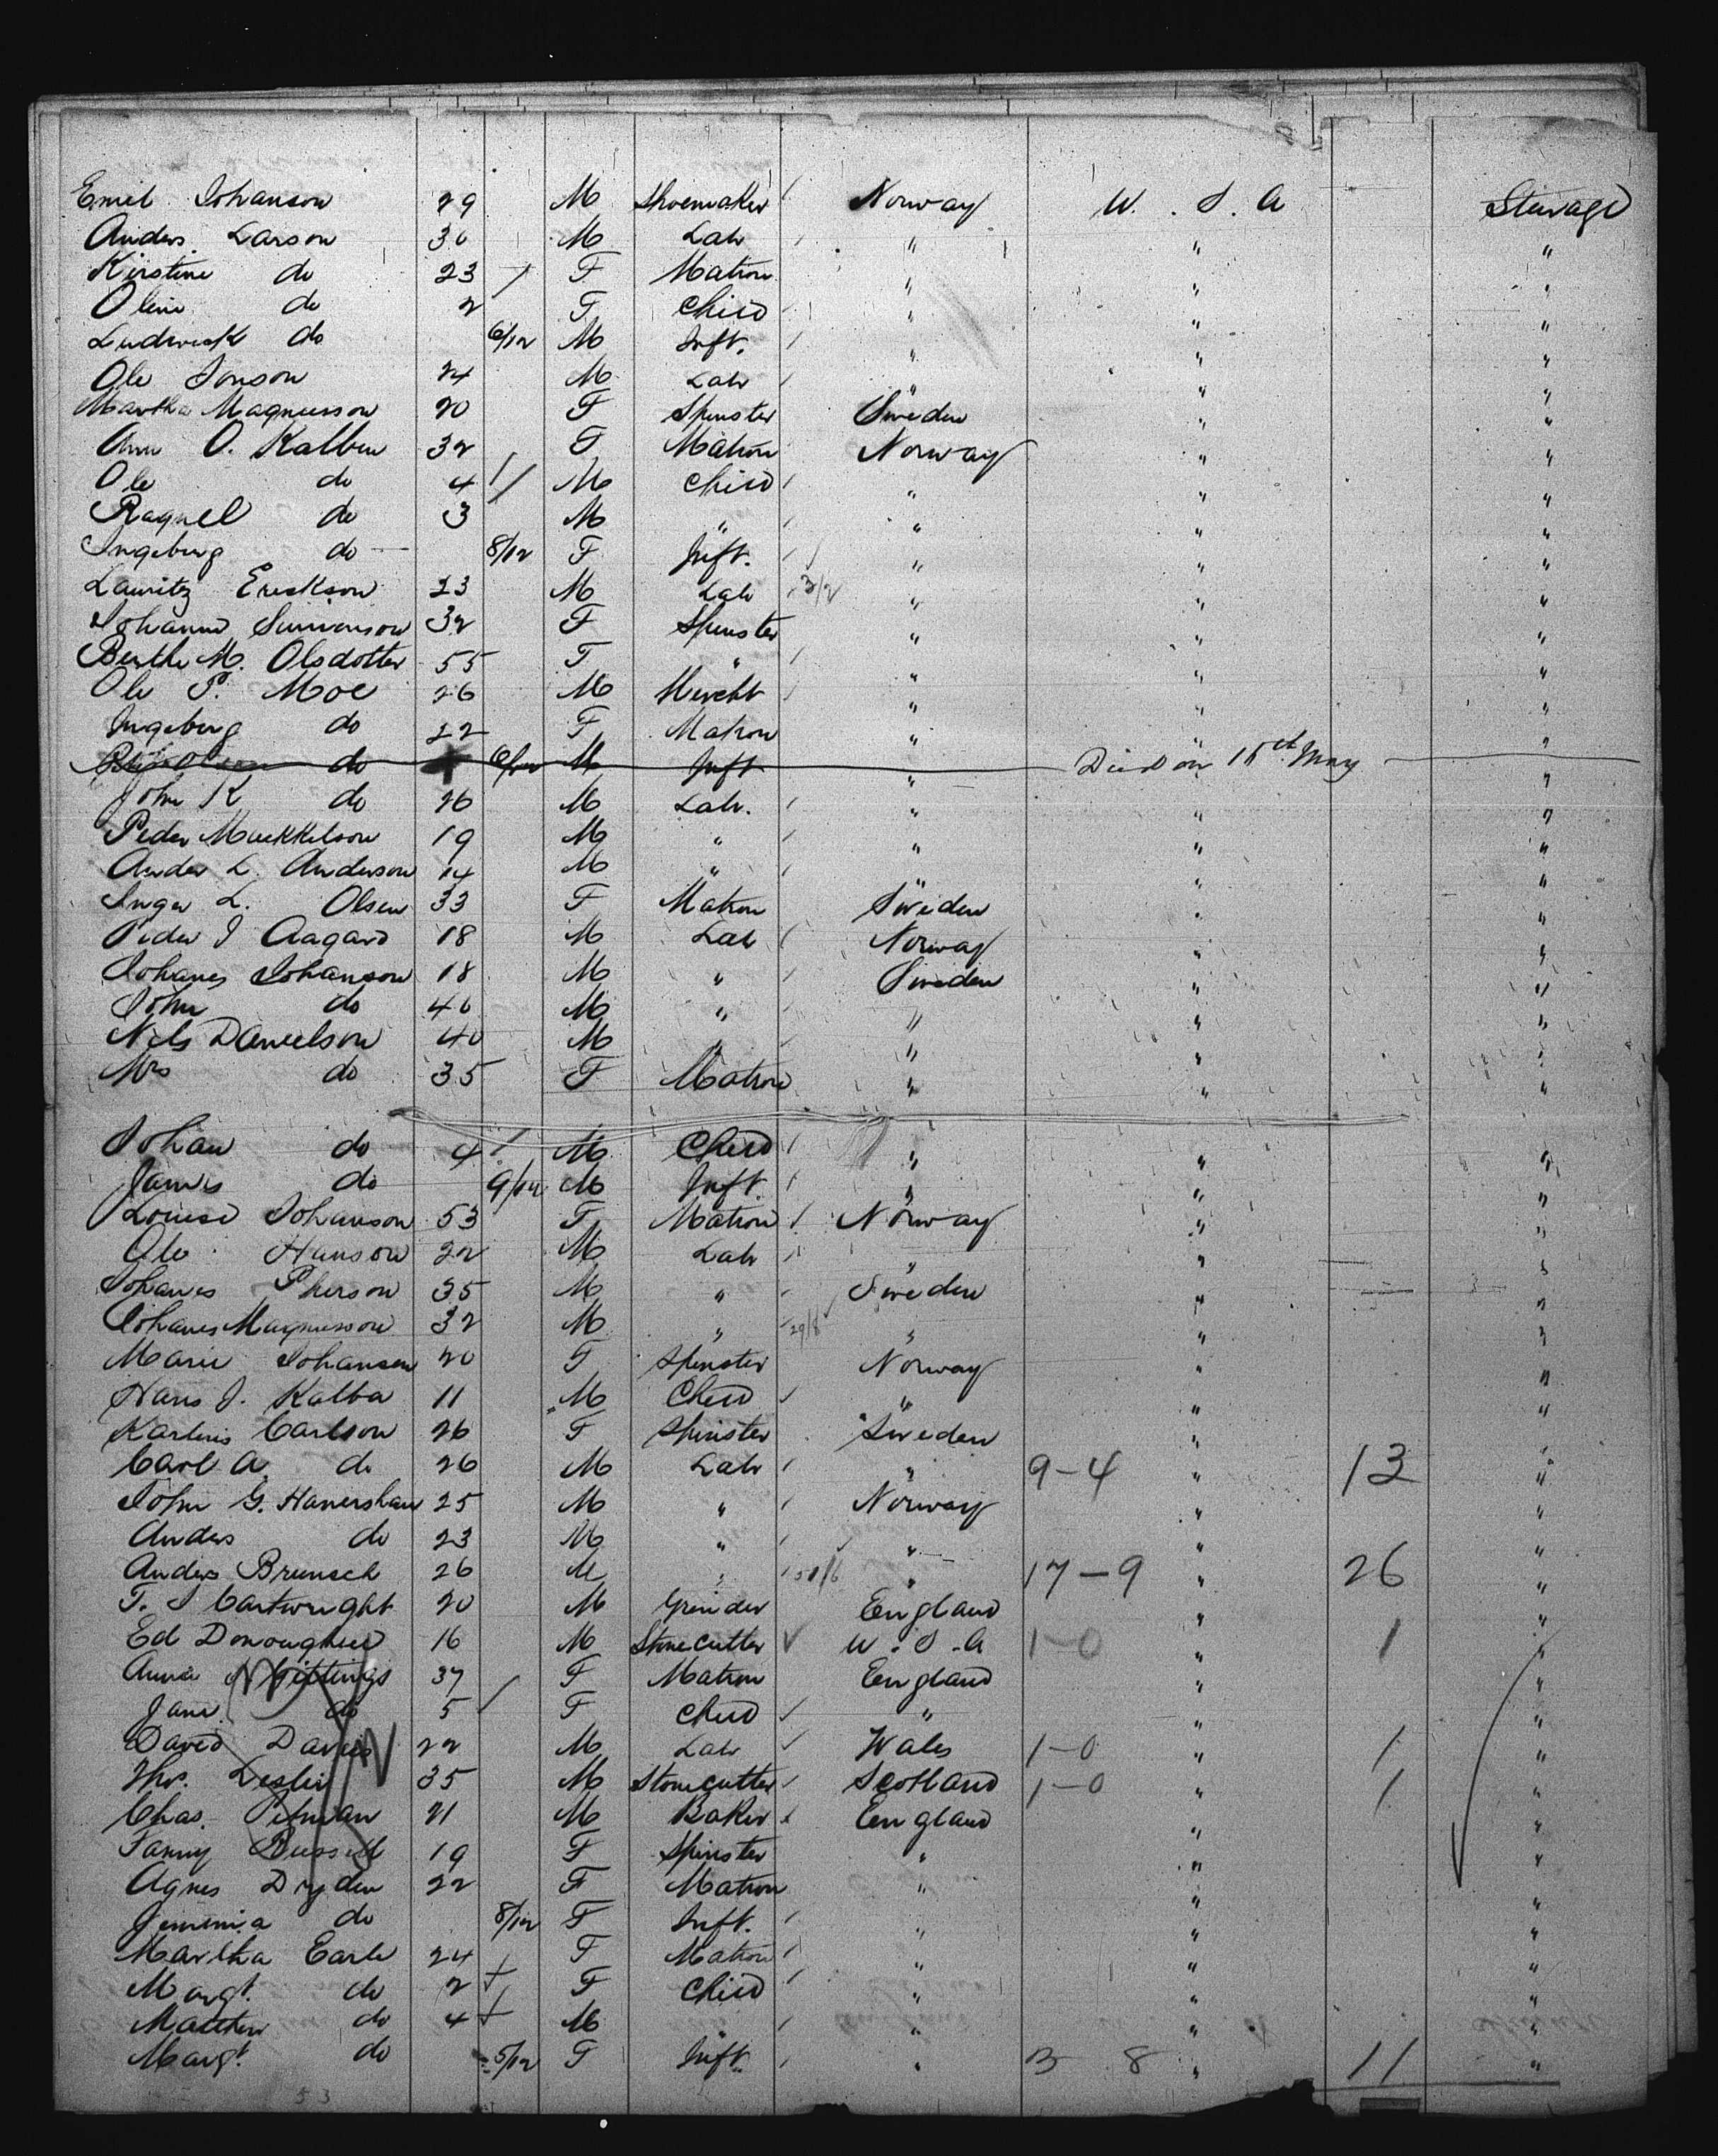 Emil Johanson 29 M Shoemaker Norway U. S. A Steerage
Anders Larson 30 M Lab " " "
Kirstine do 23 F Matron " " "
Oline do 2 F Child " " "
Ludwick do 6/12 M Inft. " " "
Ole Jonson 24 M Lab " " "
Martha Magnusson 20 F Spinster Sweden " "
Ann O. Kalben 32 F Matron Norway " "
Ole do 4 M Child " " "
Ragnel do 3 M " " " "
Ingeborg do 8/12 F Inft. " " "
Lauritz Erickson 23 M Lab " " "
Johanne Simonson 32 F Spinster " " "
Berthe M. Olsdotter 55 F " " " "
Ole P. Moe 26 M Mercht " " "
Ingeborg do 22 F Matron " " "
do 6/12 M Inft " Died on 15th May "
John K do 26 M Lab. " " "
Peder 19 M " " " "
Ander L. Anderson 14 M " " " "
Inger L. Olsen 33 F Matron Sweden " "
Peder J Aagard 18 M Lab Norway " "
Johanes Johanson 18 M " Sweden " "
John do 40 M " " " "
Nils Danielson 40 M " " " "
Mrs do 35 F Matron " " "
Johan do 4 M Child " " "
James do 9/12 M Inft " " "
Louise Johanson 53 F Matron Norway " "
Ole Hanson 22 M Lab " " "
Johanes Pherson 35 M " Sweden " "
Johanes Magnusson 32 M " 29/8 " " "
Marie Johansen 20 F Spinster Norway " "
Hans J. Kalba 11 M Child " " "
Karlinis Carlson 26 F Spinster Sweden " "
Carl A. do 26 M Lab " 9-4 " 13 "
John G. Hanershaw 25 M " Norway " "
Anders do 23 M " " " "
Anders Brunsch 26 M " " 17-9 " 26 "
T. J Cartwright 20 M Grinder England " "
Ed Donoughue 16 M Stonecutter U. S. A 1-0 " 1 "
Annie Gittings 37 F Matron England " "
Jane do 5 F Child " " "
David Davies 22 M Lab Wales 1-0 " 1 "
Thos. Leslie 35 M Stonecutter Scotland 1-0 " 1 "
Chas. Pitman 21 M Baker England " "
Fanny Bussell 19 F Spinster " " "
Agnes Dryden 22 F Matron " " "
Jemimia do 8/12 F Inft. " " "
Martha Earle 24 F Matron " " "
Margt. do 2 F Child " " "
Matthew do 4 M " " " "
Margt. do 5/12 F Inft. " 3 8 " 11 "
53